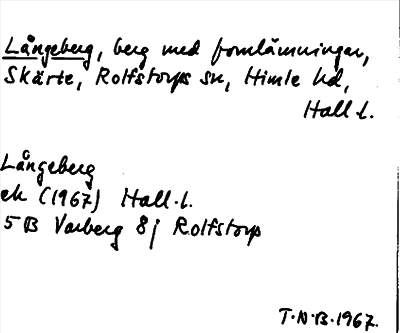 Långeberg, berg med fornlämningar,
Skärte, Rolfstorps sn, Himle hd,
Hall.l.
Långeberg
ek (1967) Hall.l.
5 B Varberg 8j Rolfstorp
T.N.B. 1967.